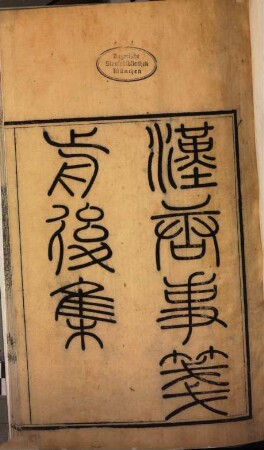 Bayerische
Staatsbibliothek
München
漢唐事箋
前後集